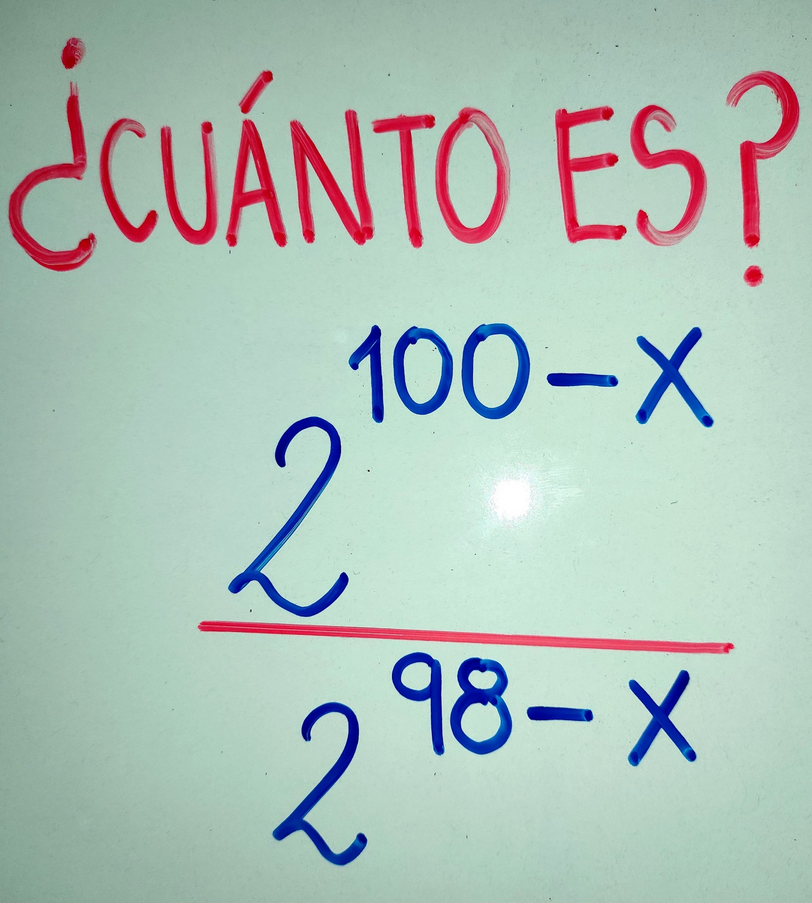 ¿CUÁNTO ES?
2^{100-x}
2^{98-x}